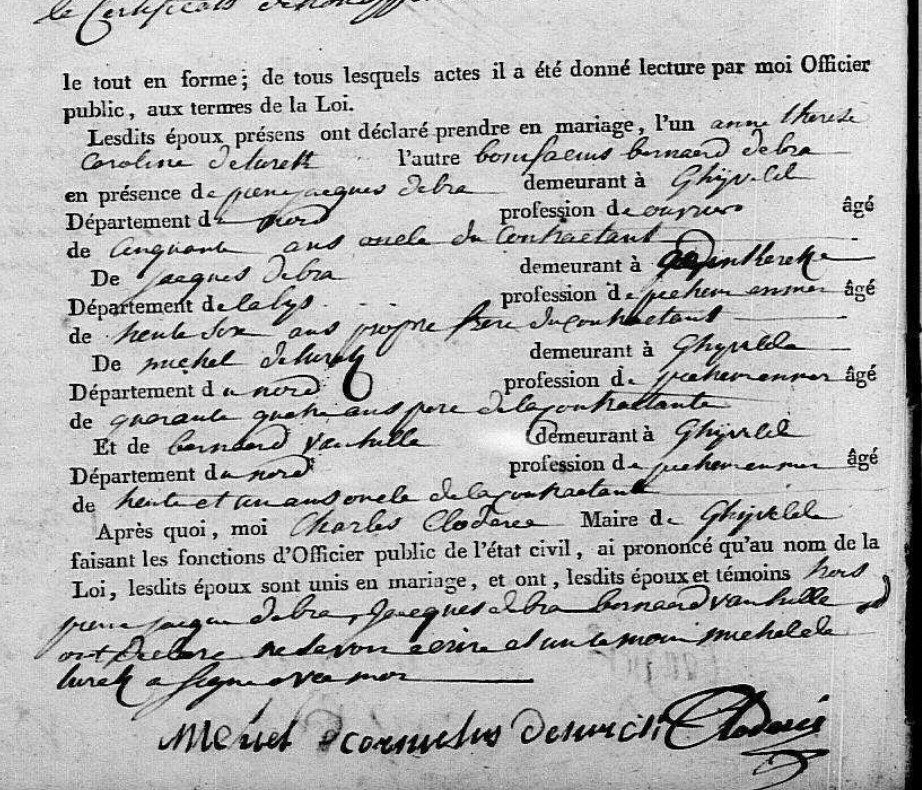 le Certificat de
le tout en forme; de tous lesquels actes il a été donné lecture par moi Officier
public, aux termes de la Loi.
Lesdits époux présens ont déclaré prendre en mariage, l'un anne therese
Caroline deturck l'autre bonifacius bernaerd debra
en présence de pierre jacques debra demeurant à Ghÿvelde
Département du nord profession de ouvrier âgé
de Cinquante ans oncle du Contractant
De jacques debra demeurant à
Département de la lys profession de pecheur en mer âgé
de trente six ans propre frere du contractant
De michel deturck demeurant à Ghÿvelde
Département du nord profession de pecheur en mer âgé
de quarante quatre ans pere de la contractante
Et de bernaerd vanhille demeurant à Ghÿvelde
Département du nord profession de pecheur en mer âgé
de trente et un ans oncle de la contractante
Après quoi, moi Charles Cloderee Maire de Ghÿvelde
faisant les fonctions d'Officier public de l'état civil, ai prononcé qu'au nom de la
Loi, lesdits époux sont unis en mariage, et ont, lesdits époux et témoins hors
pierre jacque debra, Jacques debra bernaerd vanhille
ont Declare ne savoir ecrire et un temoin michel de
turck a signe avec moi
cornelus deturck